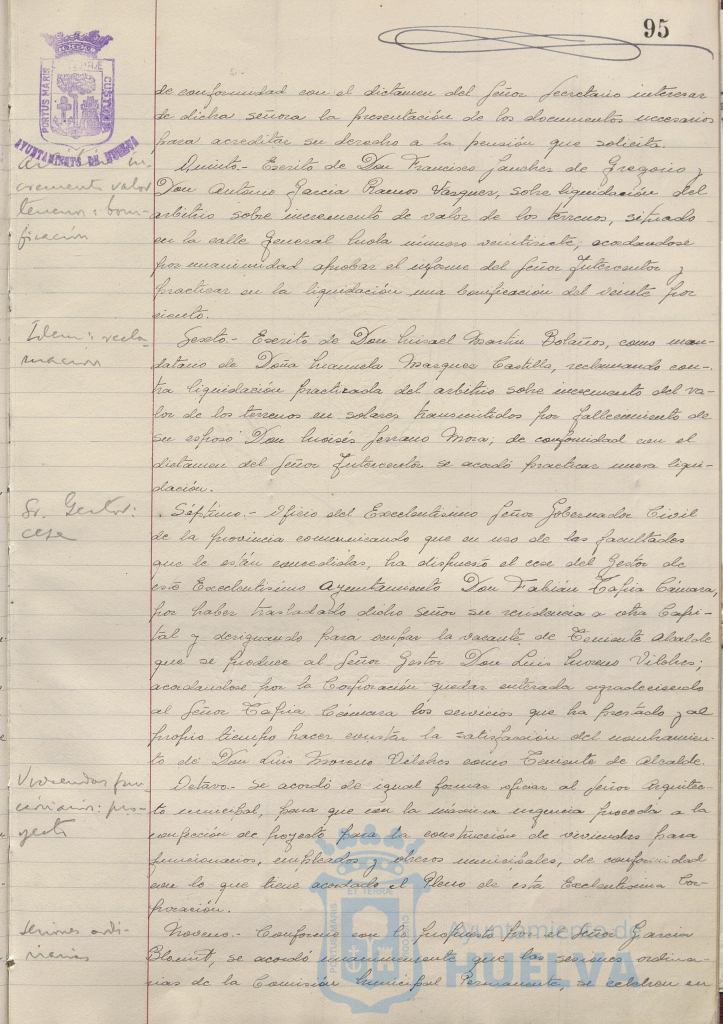 95
PORTUS MARIS ET TERRAE CUSTODIA
AYUNTAMIENTO DE HUELVA
de conformidad con el dictamen del Señor Secretario interesar
de dicha señora la presentación de los documentos necesarios
para acreditar su derecho a la pensión que solicita.
cremento valor
terrenos: boni-
ficación
Quinto.- Escrito de Don Francisco Sanchez de Gregorio y
Don Antonio Garcia Ramos Vasquez, sobre liquidación del
arbitrio sobre incremento de valor de los terrenos, situado
en la calle General Mola número veintisiete, acordandose
por unanimidad aprobar el informe del Señor Interventor y
practicar en la liquidación una bonificación del veinte por
ciento.
Idem: recla-
mación
Sexto.- Escrito de Don Misael Martin Bolaños, como man-
datario de Doña Manuela Marques Castilla, reclamando con-
tra liquidación practicada del arbitrio sobre incremento del va-
lor de los terrenos en solares transmitidos por fallecimiento de
su esposo Don Moisés Serrano Mora; de conformidad con el
dictamen del Señor Interventor se acordó practicar nueva liqui-
dación.
Sr. Gestor:
cese
Séptimo.- Oficio del Excelentisimo Señor Gobernador Civil
de la provincia comunicando que en uso de las facultades
que le están concedidas, ha dispuesto el cese del Gestor de
este Excelentisimo Ayuntamiento Don Fabián Tapia Cámara,
por haber trasladado dicho señor su residencia a otra Capi-
tal y designando para ocupar la vacante de Teniente Alcalde
que se produce al Señor Gestor Don Luis Moreno Vilches;
acordandose por la Corporación quedar enterada agradeciendo
al Señor Tapia Cámara los servicios que ha prestado y al
propio tiempo hacer constar la satisfacción del nombramien-
to de Don Luis Moreno Vilches como Teniente de Alcalde.
Viviendas fun-
cionarios: pro-
yecto
Octavo.- Se acordó de igual forma oficiar al Señor Arquitec-
to municipal, para que con la máxima urgencia proceda a la
confección de proyecto para la construcción de viviendas para
funcionarios, empleados y obreros municipales, de conformidad
con lo que tiene acordado el Pleno de esta Excelentisima Cor-
poración.
Sesiones ordi-
narias
Noveno.- Conforme con lo propuesto por el Señor Garcia
Blount, se acordó unanimemente que las sesiones ordina-
rias de la Comisión Municipal Permanente, se celebren en
PORTUS MARIS ET TERRAE CUSTODIA
Ayuntamiento de
HUELVA